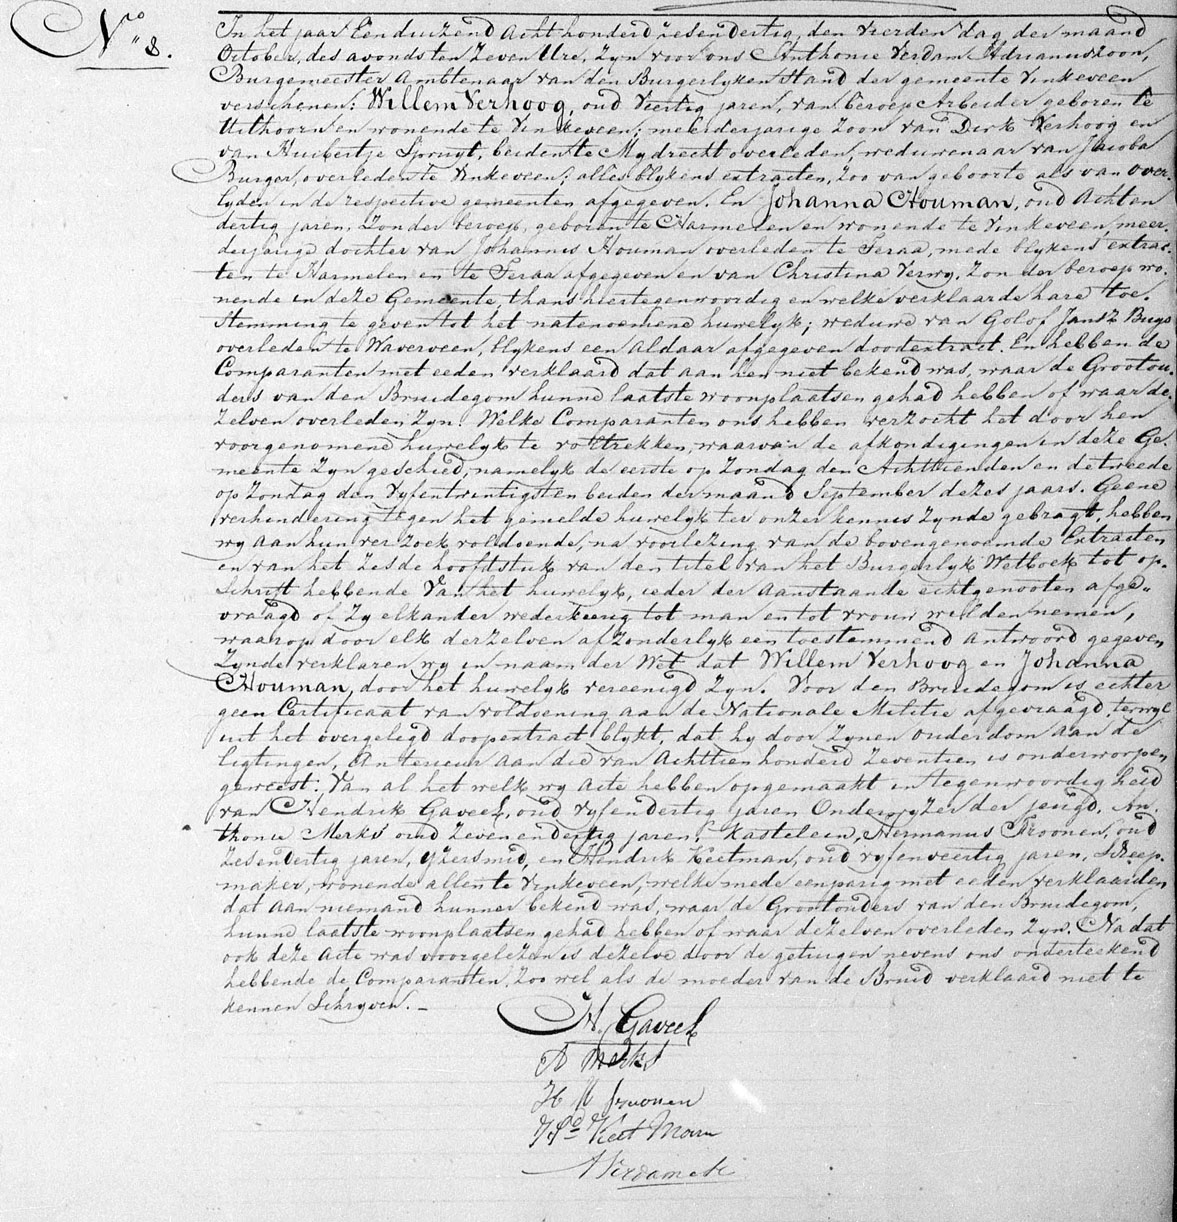 N.º 8.
In het jaar Eenduizend Acht honderd zesendertig, den Vierden dag der maand
October, des avonds ten Zeven Ure, Zyn voor ons Anthonie Verdam Adrianuszoon,
Burgemeester Ambtenaar van den Burgerlyken Stand der gemeente Vinkeveen
verschenen: Willem Verhoog, oud Veertig jaren, van beroep Arbeider geboren te
Uithoorn en wonende te Vinkeveen; meerderjarige zoon van Dirk Verhoog en
van Huibertje Spruyt, beiden te Mydrecht overleden, weduwenaar van Jacoba
Burger, overleden te Vinkeveen; alles blykens extracten, zoo van geboorte als van over-
lyden in de respective gemeenten afgegeven. En Johanna Houman, oud Achten
dertig jaren, Zonder beroep, geboren te Harmelen en wonende te Vinkeveen, meer-
derjarige dochter van Johannis Houman overleden te Teraa, mede blykens extrac-
ten te Harmelen en te Teraa afgegeven en van Christina Verwy, Zonder beroep wo-
nende in deze Gemeente, thans hiertegenwoordig en welke verklaarde hare toe-
stemming te geven tot het natenoemene huwelyk; weduwe van Golof Jansz Buys
overleden te Waverveen, blykens een Aldaar afgegeven doodextract. En hebben de
Comparanten met eeden verklaard dat aan hen niet bekend was, waar de Grootou-
ders van den Bruidegom hunne laatste woonplaatsen gehad hebben of waar de-
zelven overleden Zyn. Welke Comparanten ons hebben verzocht het door hen
voorgenomene huwelyk te voltrekken, waarvan de afkondigingen in deze Ge-
meente Zyn geschied, namelyk de eerste op Zondag den Achttienden en de tweede
op Zondag den Vyfentwintigsten beiden der maand September dezes jaars. Geene
verhindering tegen het gemelde huwelyk ter onzer kennis Zynde gebragt, hebben
wy aan hun verzoek voldoende, na voorlezing van de bovengenoemde Extracten
en van het Zesde hoofdstuk van den titel van het Burgerlyk Wetboek tot op-
schrift hebbende Van het huwelyk, ieder der Aanstaande echtgenooten afge-
vraagd of Zy elkander wederkeerig tot man en tot vrouw wilden nemen,
waarop door elk derzelven afzonderlyk een toestemmend Antwoord gegeven
Zynde verklaren wy in naam der Wet dat Willem Verhoog en Johanna
Houman, door het huwelyk vereenigd Zyn. Voor den Bruidegom is echter
geen Certificaat van voldoening aan de Nationale Militie afgevraagd, terwyl
uit het overgelegd doopextract blykt, dat hy door Zynen ouderdom aan de
ligtingen, Anterieur aan die van Achttien honderd Zeventien is onderworpen
geweest: Van al het welk wy Acte hebben opgemaakt in tegenwoordigheid
van Hendrik Gaveel, oud vyfendertig jaren Onderwyzer der jeugd, An-
thonie Merks oud Zevenendertig jaren, Kasteleen, Hermanus Froonen, oud
Zesendertig jaren, Yzersmid, en Hendrik Keetman, oud vyfenveertig jaren, Scheep-
maker, wonende allen te Vinkeveen, welke mede eenparig met eeden verklaarden
dat aan niemand hunner bekend was, waar de Grootouders van den Bruidegom,
hunne laatste woonplaatsen gehad hebben of waar dezelven overleden Zyn. Na dat
ook deze Acte was voorgelezen is dezelve door de getuigen nevens ons onderteekend
hebbende de Comparanten, Zoo wel als de moeder van de Bruid verklaard niet te
kennen Schryven. –
H. Gaveel
A Merks
H Froonen
Hd Keet Man
A Verdam